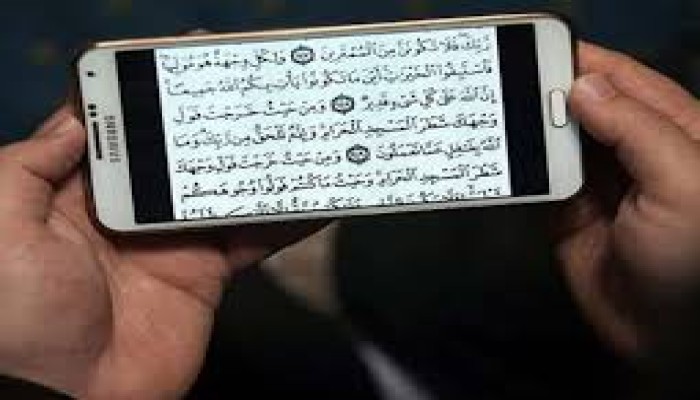 رَّبِّكَ فَلَا تَكُونَنَّ مِنَ الْمُمْتَرِينَ ۝ وَلِكُلٍّ وِجْهَةٌ هُوَ مُوَلِّيهَا
فَاسْتَبِقُوا الْخَيْرَاتِ أَيْنَ مَا تَكُونُوا يَأْتِ بِكُمُ اللَّهُ جَمِيعًا
إِنَّ اللَّهَ عَلَى كُلِّ شَيْءٍ قَدِيرٌ ۝ وَمِنْ حَيْثُ خَرَجْتَ فَوَلِّ
وَجْهَكَ شَطْرَ الْمَسْجِدِ الْحَرَامِ وَإِنَّهُ لَلْحَقُّ مِن رَّبِّكَ وَمَا
اللَّهُ بِغَافِلٍ عَمَّا تَعْمَلُونَ ۝ وَمِنْ حَيْثُ خَرَجْتَ فَوَلِّ وَجْهَكَ
شَطْرَ الْمَسْجِدِ الْحَرَامِ وَحَيْثُ مَا كُنتُمْ فَوَلُّوا وُجُوهَكُمْ
SAMSUNG